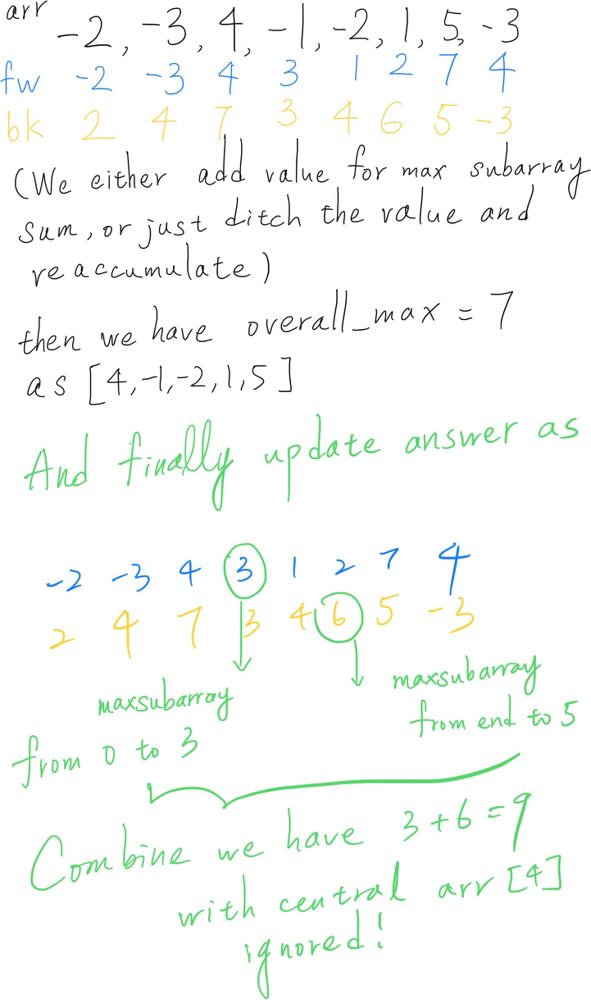 arr -2, -3, 4, -1, -2, 1, 5, -3
fw -2 -3 4 3 1 2 7 4
bk 2 4 7 3 4 6 5 -3
(We either add value for max subarray
sum, or just ditch the value and
reaccumulate)
then we have overall_max = 7
as [4,-1,-2,1,5]
And finally update answer as
-2 -3 4 3 1 2 7 4
2 4 7 3 4 6 5 -3
maxsubarray
from 0 to 3
maxsubarray
from end to 5
Combine we have 3+6=9
with central arr [4]
ignored!